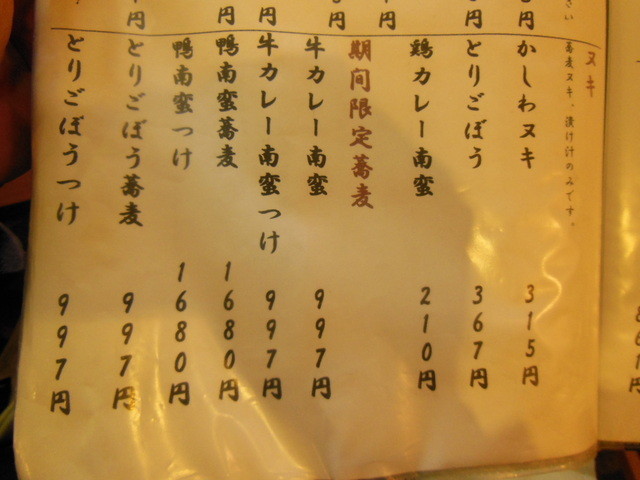 ヌキ
蕎麦ヌキ。漬け汁のみです。
かしわヌキ 315円
とりごぼう 367円
鶏カレー南蛮 210円
期間限定蕎麦
牛カレー南蛮 997円
牛カレー南蛮つけ 997円
鴨南蛮蕎麦 1680円
鴨南蛮つけ 1680円
とりごぼう蕎麦 997円
とりごぼうつけ 997円